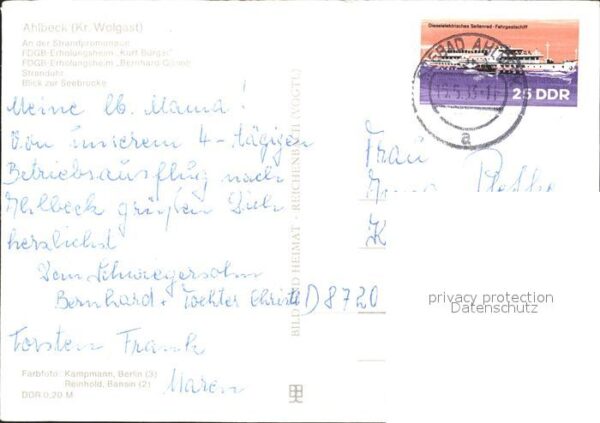 Ahlbeck (Kr. Wolgast)
An der Strandpromenade
FDGB-Erholungsheim „Kurt Bürger"
FDGB-Erholungsheim „Bernhard Göring"
Stranduhr
Blick zur Seebrücke
Dieselelektrisches Seitenrad - Fahrgastschiff
25 DDR
SEEBAD
a
Meine lb. Mama!
Von unserem 4-tägigen
Betriebsausflug nach
Ahlbeck grüßen Dich
herzlichst
Dein Schwiegersohn
Bernhard + Tochter Christe
Torsten Frank
Maren
BILD UND HEIMAT · REICHENBACH (VOGTL)
Frau
D 8720
privacy protection
Datenschutz
Farbfoto: Kampmann, Berlin (3)
Reinhold, Bansin (2)
DDR 0,20 M